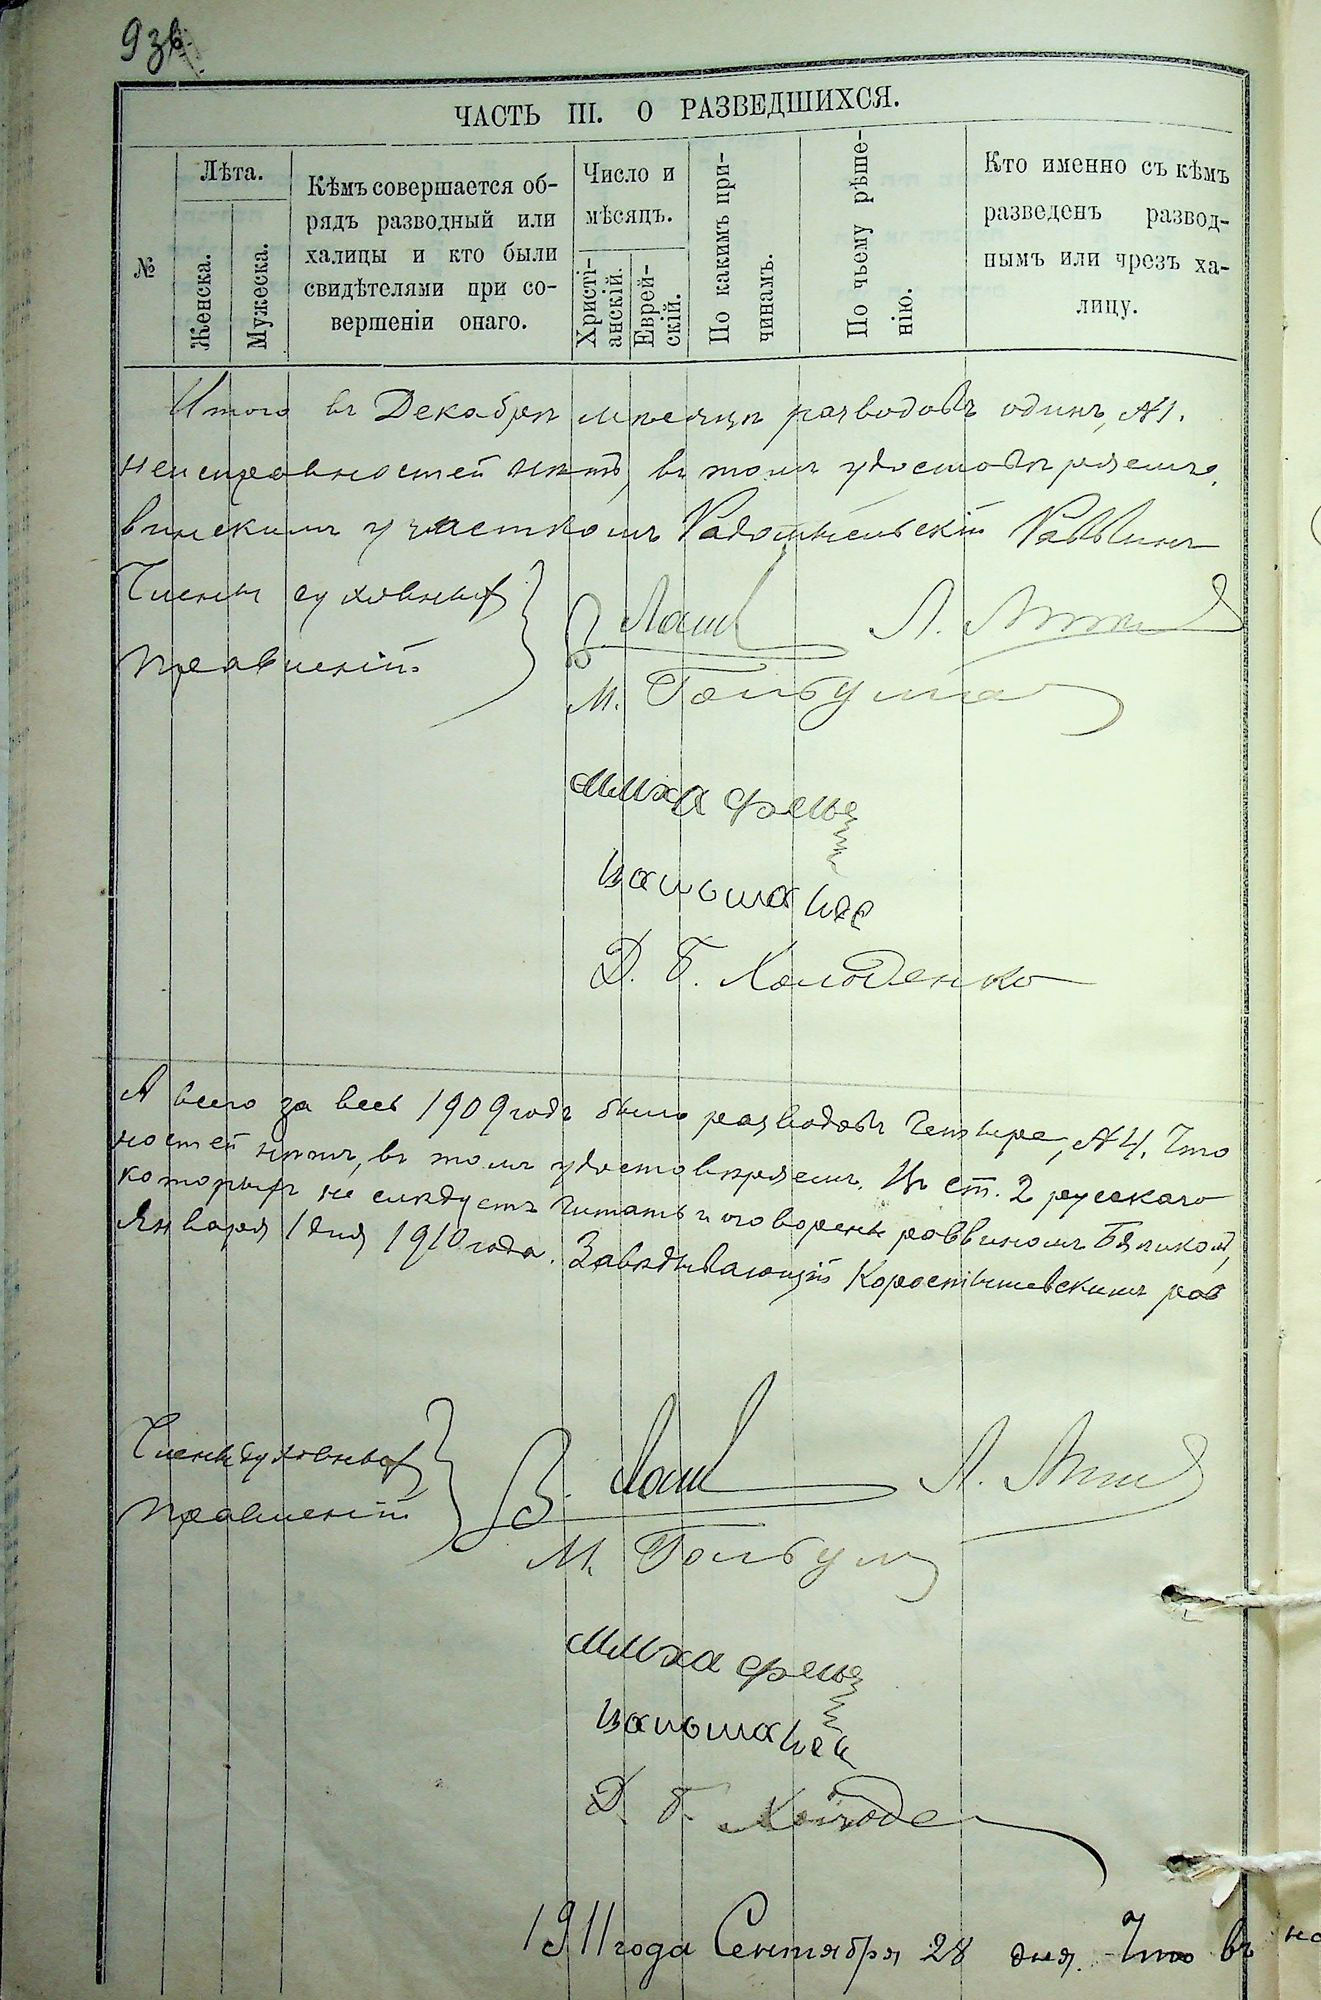 93б
ЧАСТЬ III. О РАЗВЕДШИХСЯ.
№
Лѣта.
Женска.
Мужеска.
Кѣмъ совершается об-
рядъ разводный или
халицы и кто были
свидѣтелями при со-
вершеніи онаго.
Число и
мѣсяцъ.
Христі-
анскій.
Еврей-
скій.
По какимъ при-
чинамъ.
По чьему рѣше-
нію.
Кто именно съ кѣмъ
разведенъ развод-
нымъ или чрезъ ха-
лицу.
Итого въ Декабрѣ мѣсяцѣ разводовъ одинъ, №1.
неисправностей нѣтъ, въ томъ удостовѣряемъ.
винскимъ участкомъ Радомысльскій Раввинъ
Члены духовныхъ
правленій
М.
Д. Б. Холоденко
А всего за весь 1909 годъ было разводовъ четыре, №4. Что
ностей нѣтъ, въ томъ удостовѣряемъ. Въ ст. 2 русскаго
которыхъ не слѣдуетъ читать и оговорены раввиномъ
Января 1 дня 1910 года. Завѣдывающій Коростышевскимъ рав
Члены духовныхъ
правленій
М.
Д. Б.
1911 года Сентября 28 дня. Что въ